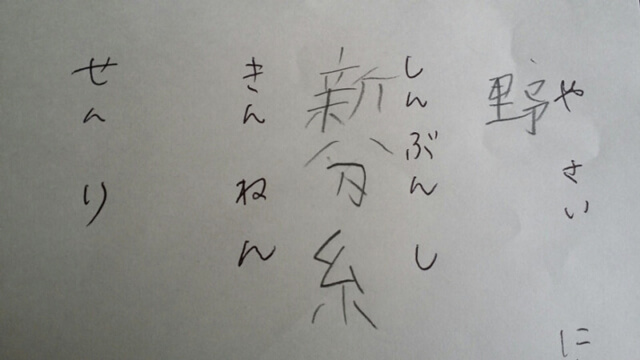 やさい
野
に
しんぶんし
新分糸
きんねん
せんり